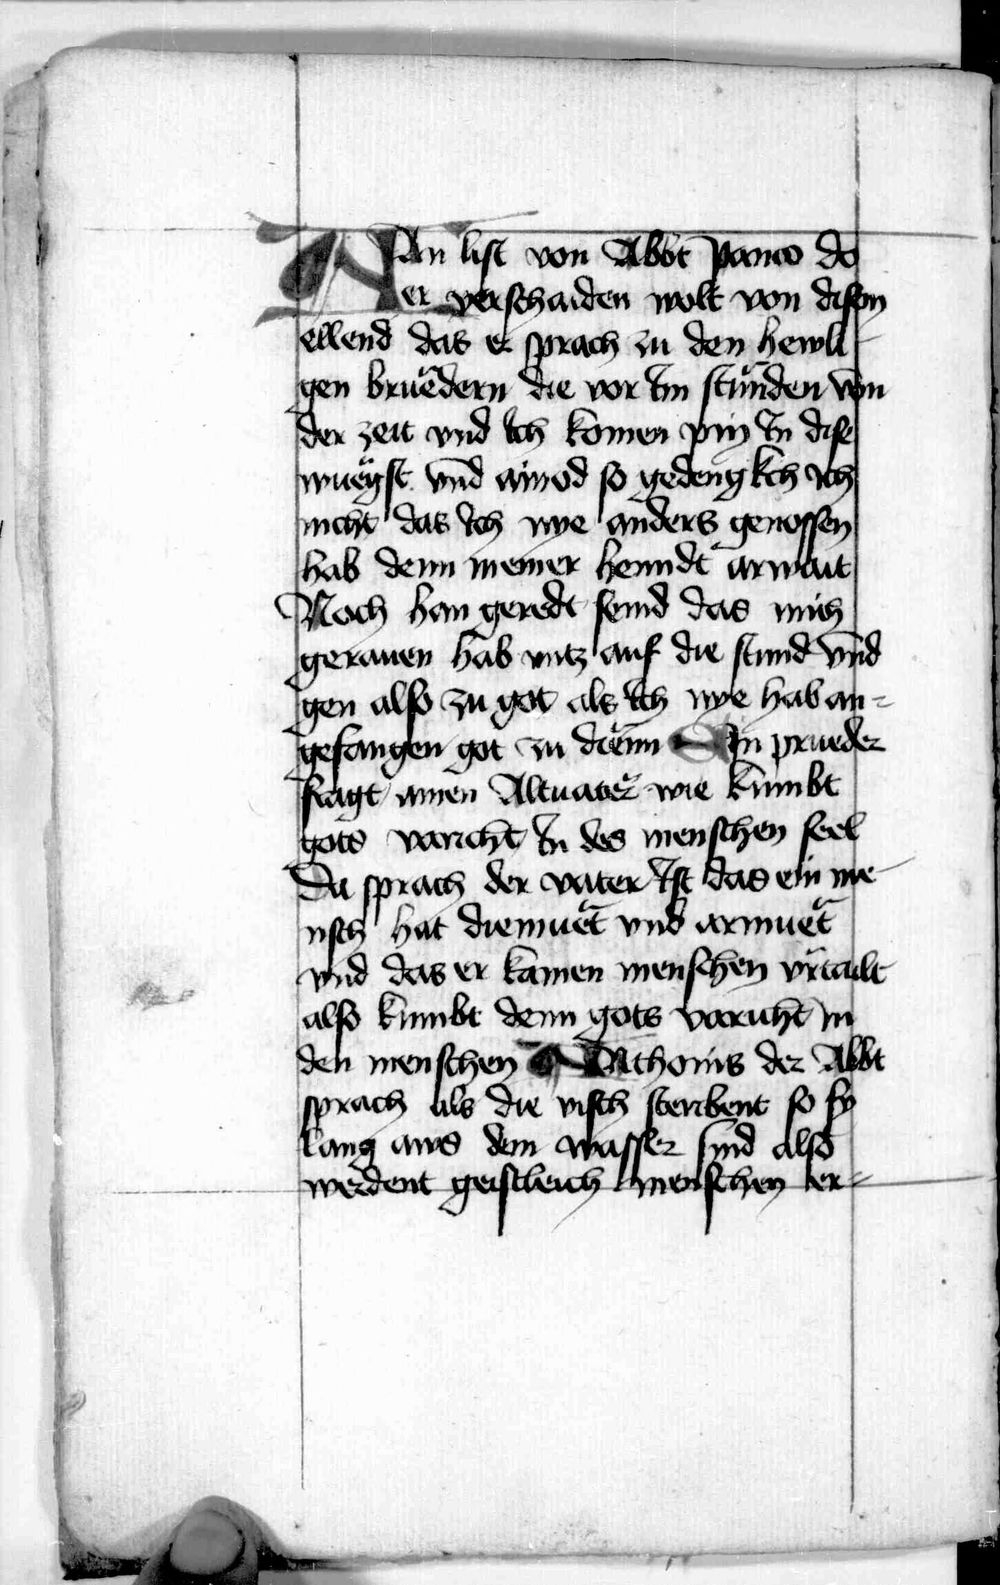 MAn list von Abbt Panco do
er verschaiden wolt von disem
ellend das er sprach zu den hewli
gen bruedern die vor Im stunden von
der zeit vnd Ich komen pin In dise
wuegst vnd ainod so gedengkch Ich
nicht das Ich nye anders genossen
hab denn meiner henndt arwait
Noch hain geredt seind das mich
gerauen hab vntz auf die stund vnd
gen also zu got als Ich nye hab an=
gefangen got zu dienn Ain prueder
fragt ainen Altuater wie kumbt
gots voricht In des menschen seel
Da sprach der vater Ist das ein me
nsch hat diemuet vnd armuet
vnd das er kainen menschen vrtailt
also kumbt denn gots voricht in
den menschen ANthonis der Abbt
sprach als die visch sterbent so sy
lang aws dem wasser sind also
werdent geistleich menschen er=